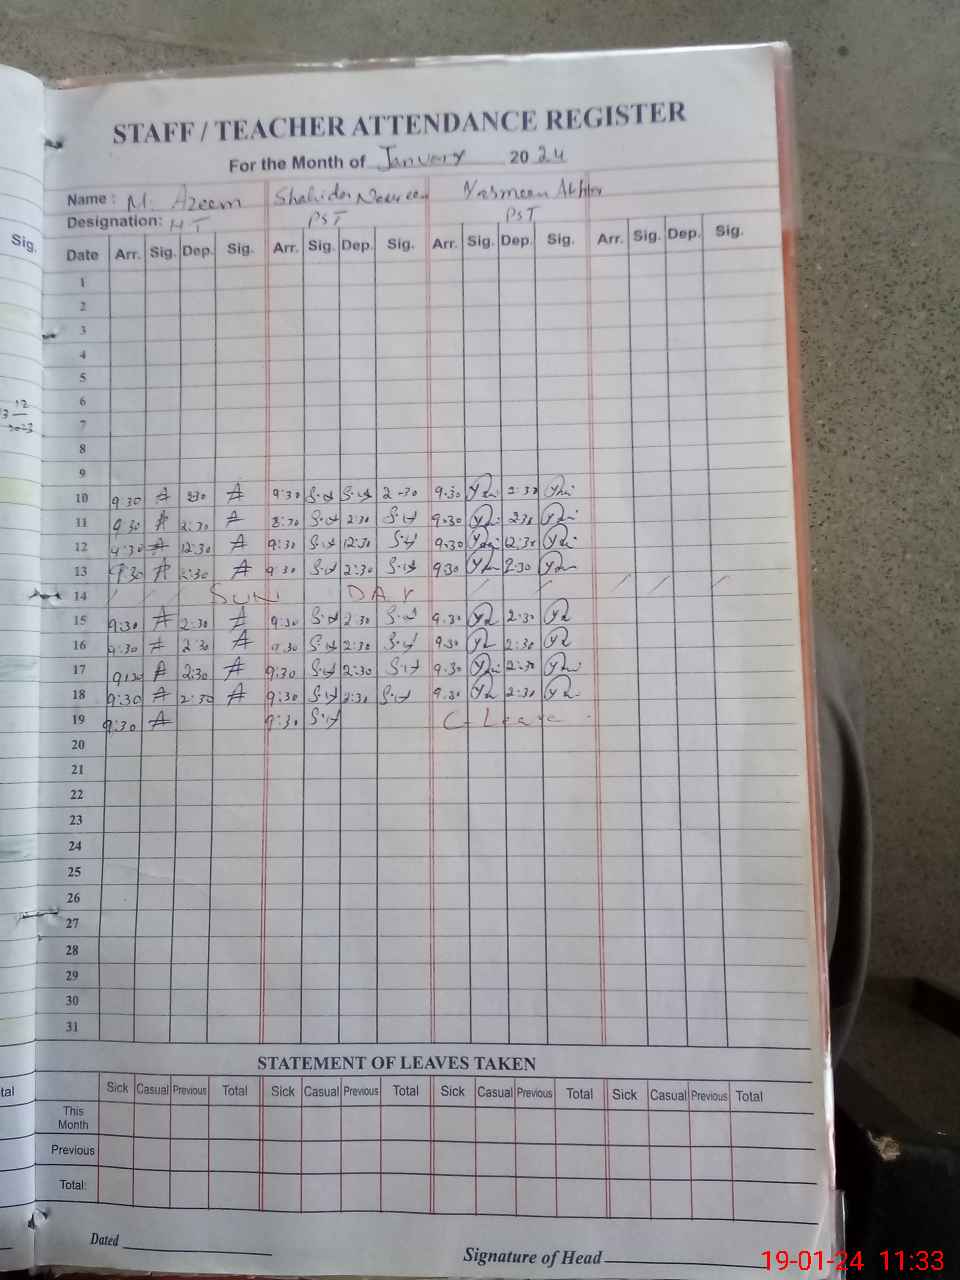 STAFF / TEACHER ATTENDANCE REGISTER
For the Month of January 2024
Name : M. Azeem Shahida Nasreen Yasmeen Akhter
Designation: HT PST PST
Sig.
Date Arr. Sig. Dep. Sig. Arr. Sig. Dep. Sig. Arr. Sig. Dep. Sig. Arr. Sig. Dep. Sig.
1
2
3
4
5
6
12
2023
7
8
9
10 9:30 2:30 9:30 2-30 9.30 2:30
11 9:30 2:30 8:30 2:30 9.30 2:30
12 9:30 12:30 9:30 12:30 9.30 12:30
13 9:30 2:30 9:30 2:30 9.30 2:30
14 SUN DAY
15 9:30 2:30 9:30 2:30 9.30 2:30
16 9:30 2:30 9:30 2:30 9.30 2:30
17 9:30 2:30 9:30 2:30 9.30 2:30
18 9:30 2:30 9:30 2:30 9.30 2:30
19 9:30 9:30 C-Leave
20
21
22
23
24
25
26
27
28
29
30
31
STATEMENT OF LEAVES TAKEN
tal
Sick Casual Previous Total Sick Casual Previous Total Sick Casual Previous Total Sick Casual Previous Total
This
Month
Previous
Total:
Dated
Signature of Head
19-01-24 11:33